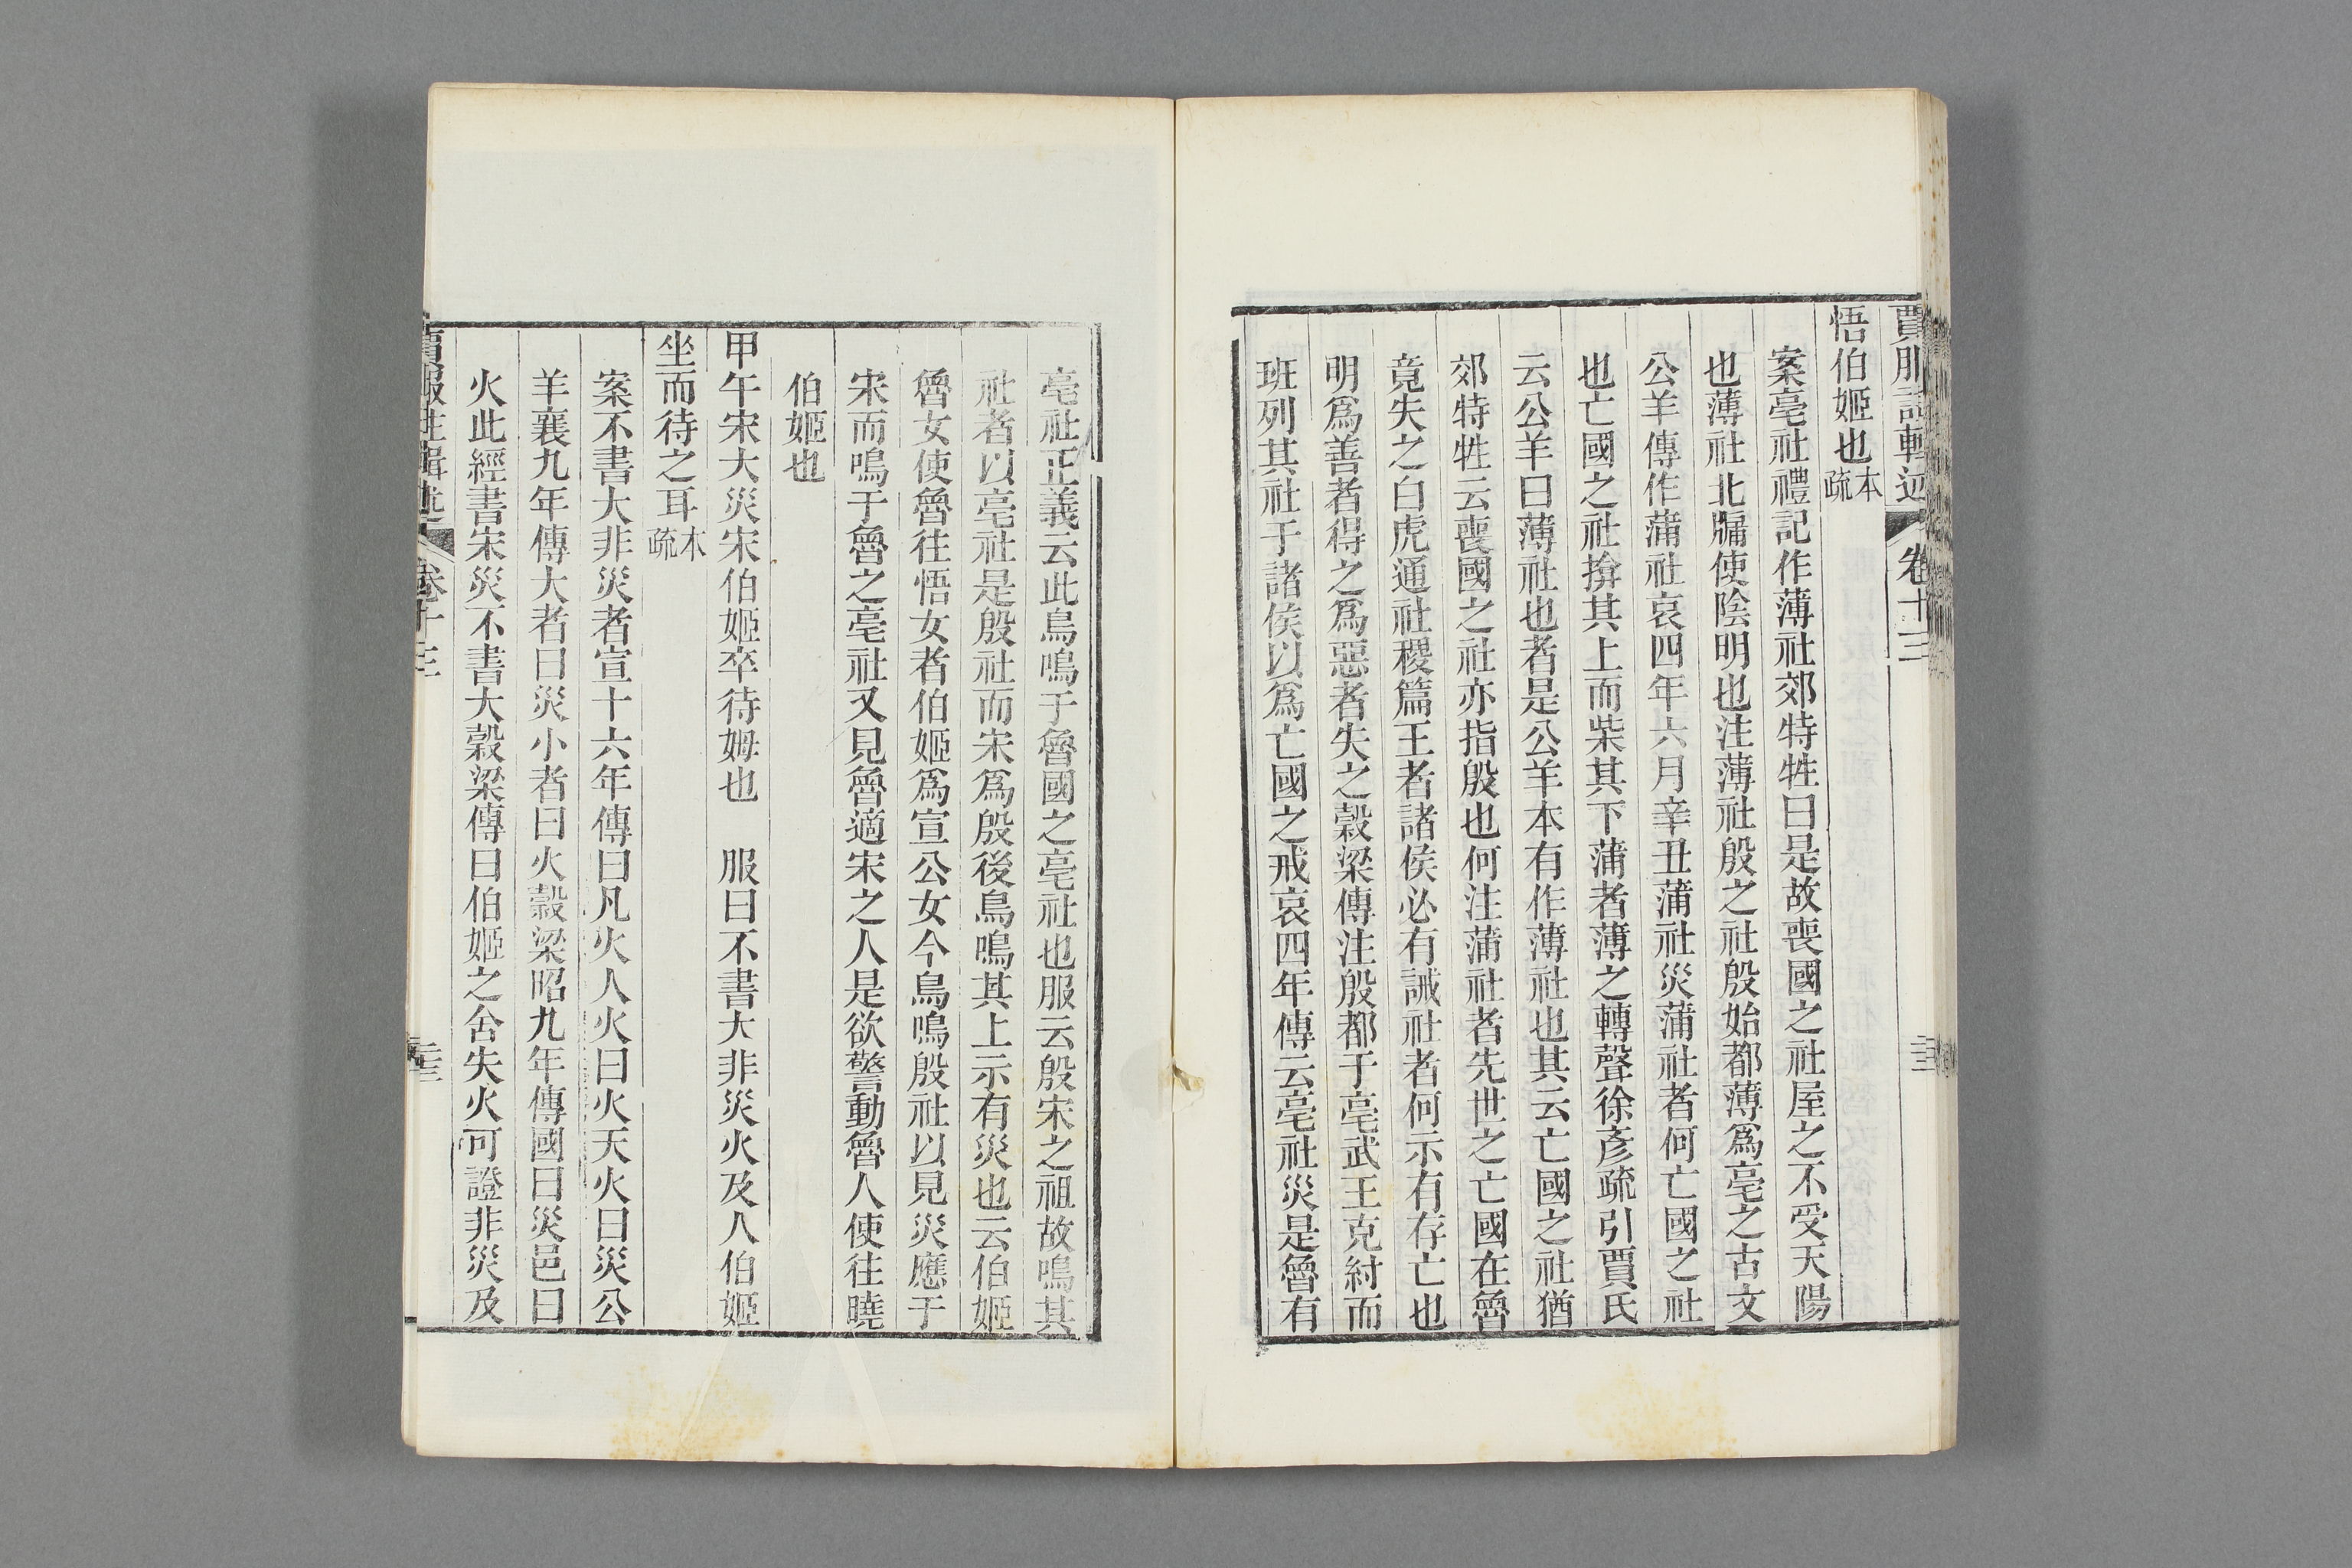 賈服註輯述 卷十三 二十三
悟伯姬也本疏
案亳社禮記作薄社郊特牲曰是故喪國之社屋之不受天陽
也薄社北牖使陰明也注薄社殷之社殷始都薄爲亳之古文
公羊傳作蒲社哀四年六月辛丑蒲社災蒲社者何亡國之社
也亡國之社揜其上而柴其下蒲者薄之轉聲徐彥疏引賈氏
云公羊曰薄社也者是公羊本有作薄社也其云亡國之社猶
郊特牲云喪國之社亦指殷也何注蒲社者先世之亡國在魯
竟失之白虎通社稷篇王者諸侯必有誡社者何示有存亡也
明爲善者得之爲惡者失之穀梁傳注殷都于亳武王克紂而
班列其社于諸侯以爲亡國之戒哀四年傳云亳社災是魯有
亳社正義云此鳥鳴于魯國之亳社也服云殷宋之祖故鳴其
社者以亳社是殷社而宋爲殷後鳥鳴其上示有災也云伯姬
魯女使魯往悟女者伯姬爲宣公女今鳥鳴殷社以見災應于
宋而鳴于魯之亳社又見魯適宋之人是欲警動魯人使往曉
伯姬也
甲午宋大災宋伯姬卒待姆也　服曰不書大非災火及人伯姬
坐而待之耳本疏
案不書大非災者宣十六年傳曰凡火人火曰火天火曰災公
羊襄九年傳大者曰災小者曰火穀梁昭九年傳國曰災邑曰
火此經書宋災不書大穀梁傳曰伯姬之舍失火可證非災及
賈服註輯述 卷十三 二十三